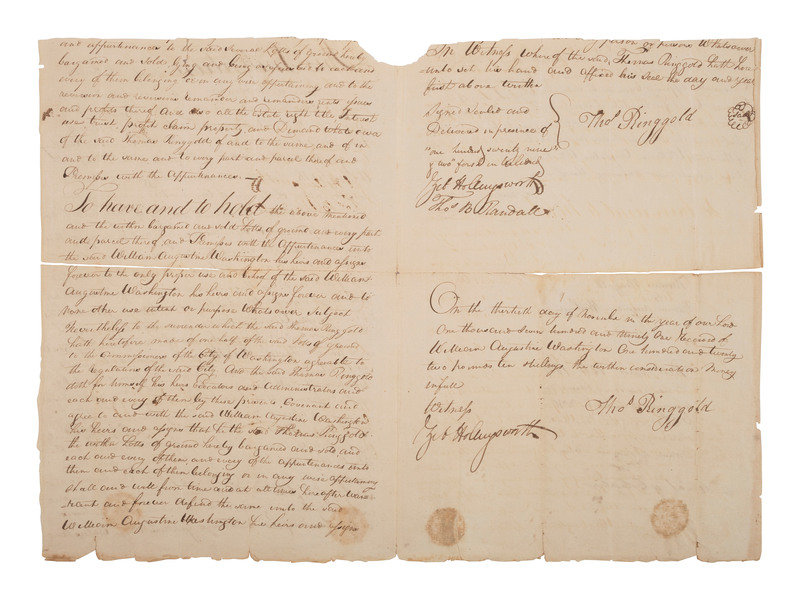 and appurtenances to the said several Lotts of ground hereby
bargained and sold lying and being or in any
way of them belonging or in any wise appertaining and to the
reversion and reversions remainder and remainders rents issues
and profits thereof and also all the Estate right title Interest
use trust profit claim property and Demand whatsoever
of the said Thomas Ringgold of and to the same and of in
and to the same and to every part and parcel thereof and
Premises with the Appurtenances
To have and to hold the above mentioned
and the within bargained and sold Lotts of ground and every part
and parcel thereof and Premises with the Appurtenances unto
the said William Augustine Washington his heirs and assigns
forever to the only proper use and behoof of the said William
Augustine Washington his heirs and assigns forever and to
none other use intent or purpose whatsoever Subject
Nevertheless to the surrender which the said Thomas Ringgold
hath heretofore made of one half of the said Lotts of ground
to the Commissioners of the City of Washington agreeable to
the regulations of the said City And the said Thomas Ringgold
doth for himself his heirs Executors and Administrators and
each and every of them by these presents Covenant and
agree to and with the said William Augustine Washington
his heirs and assigns that to the said Thomas Ringgold
the within Lotts of ground hereby bargained and sold and
each and every of them and every of the appurtenances unto
them and each of them belonging or in any wise appertaining
shall and will from time and at all times hereafter warr
rant and forever defend the same unto the said
William Augustine Washington his heirs and assigns
person or persons Whatsoever
In Witness where of the said Thomas Ringgold hath here
unto set his hand and affixed his seal the day and year
first above written
Signed Sealed and
Delivered in presence of
"one hundred seventy nine
& two" forsd
Thos Ringgold
Seal
Jeb Hollingsworth
Thos B. Randall
On the thirtieth day of November in the year of our Lord
One thousand seven hundred and ninety one Received of
William Augustine Washington One hundred and twenty
two pounds ten shillings the within consideration Money
in full
Witness
Thos Ringgold
Jeb Hollingsworth